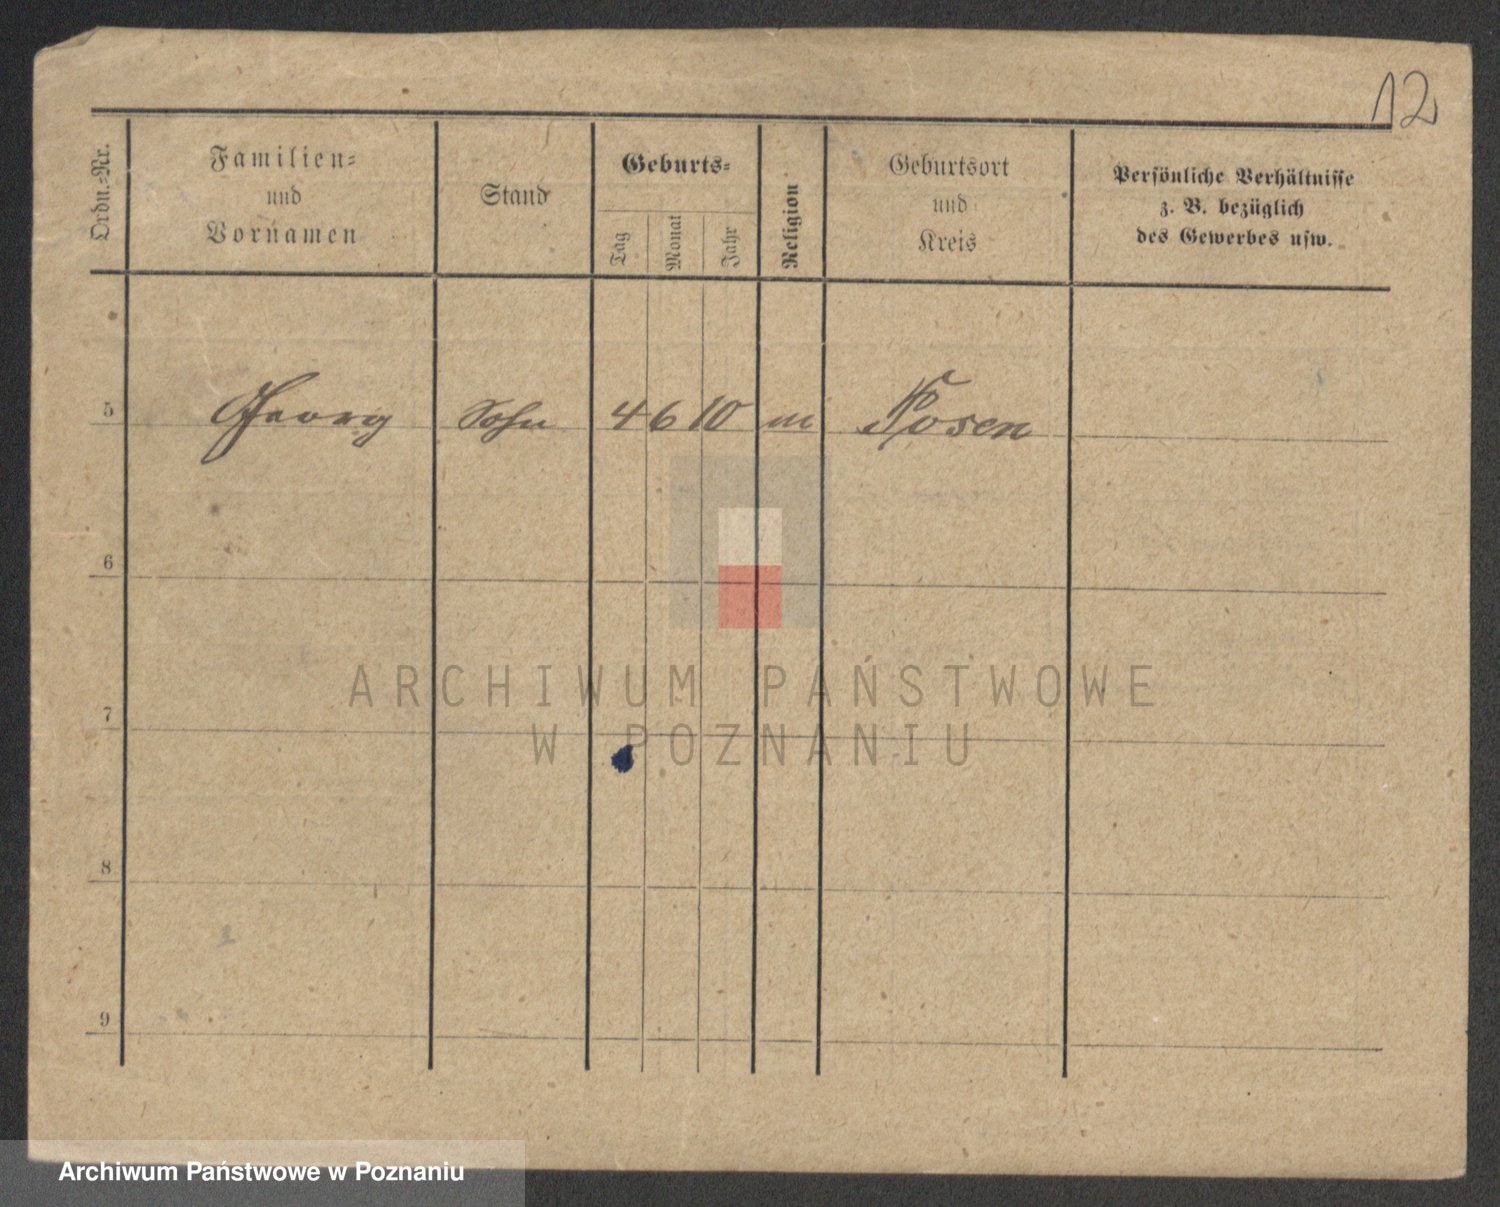 12
Ordn.-Nr.
Familien-
und
Vornamen
Stand
Geburts-
Tag
Monat
Jahr
Religion
Geburtsort
und
Kreis
Persönliche Verhältnisse
z. B. bezüglich
des Gewerbes usw.
5 Georg Sohn 4 6 10 m Posen
6
ARCHIWUM PAŃSTWOWE
7
W POZNANIU
8
9
Archiwum Państwowe w Poznaniu